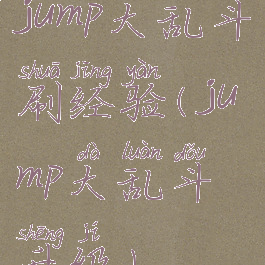 jump大乱斗
shuā jīng yàn
刷经验(ju
dà luàn dòu
mp大乱斗
shēng jí
升级)